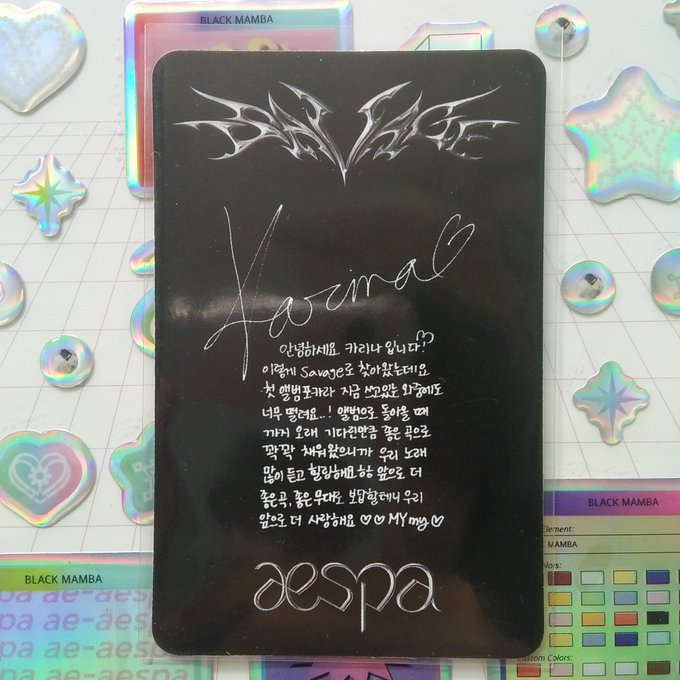 BLACK MAMBA
SAVAGE
Karina♡
안녕하세요 카리나 입니다!♡
이렇게 Savage로 찾아왔는데요
첫 앨범포카라 지금 쓰고있는 와중에도
너무 떨려요..! 앨범으로 돌아올 때
까지 오래 기다린만큼 좋은 곡으로
꽉꽉 채워왔으니까 우리 노래
많이 듣고 힐링해요ㅎㅎ 앞으로 더
좋은곡, 좋은 무대로 보답할테니 우리
앞으로 더 사랑해요 ♡♡ MY my♡
aespa
BLACK MAMBA
Element:
MAMBA
Custom Colors:
BLACK MAMBA
pa ae-aesp
pa ae-aespa
pa ae-aespa